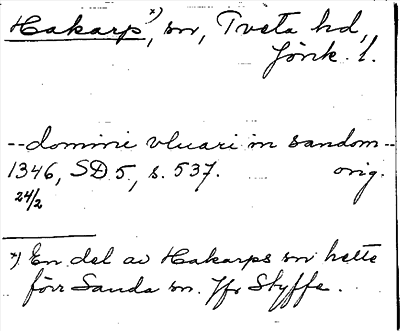 Hakarp *), sn, Tveta hd,
Jönk. l.
-- domini vluari in sandom --
1346, SD 5, s. 537. orig.
24/2
*) En del av Hakarps sn hette
förr Sanda sn. Jfr Styffe.